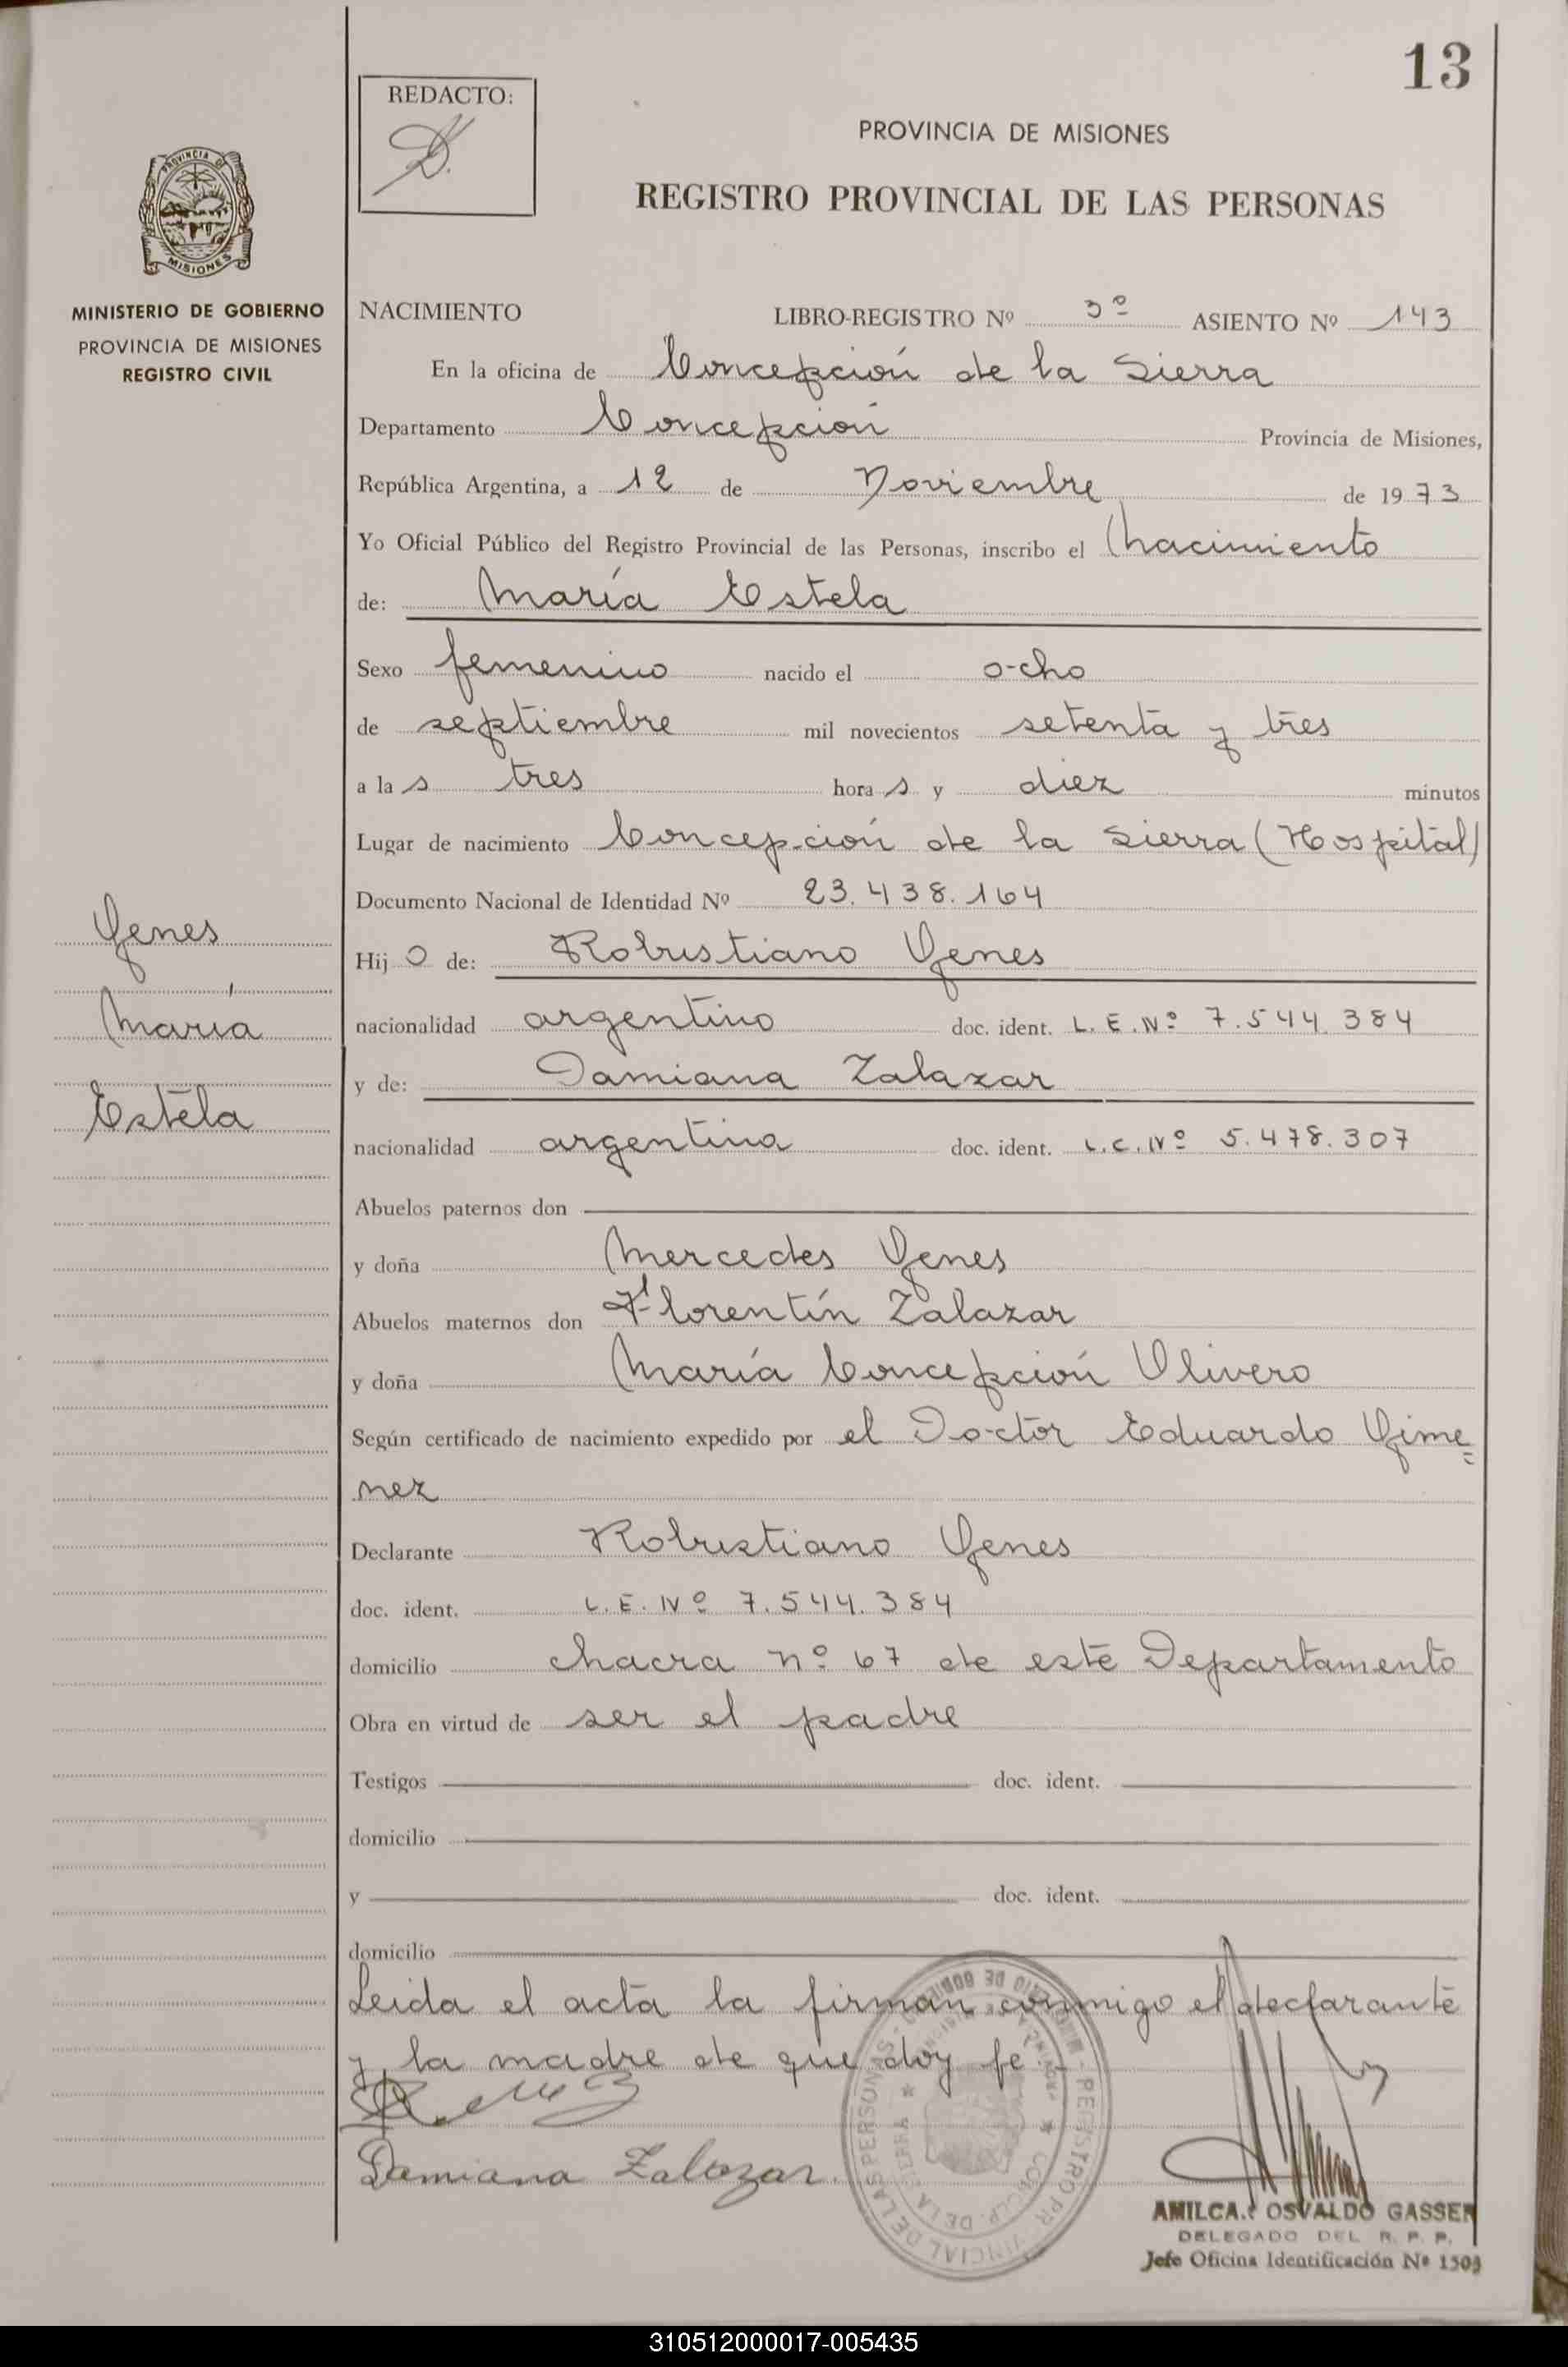 13
REDACTO:
PROVINCIA DE MISIONES
REGISTRO PROVINCIAL DE LAS PERSONAS
PROVINCIA DE
MISIONES
MINISTERIO DE GOBIERNO
PROVINCIA DE MISIONES
REGISTRO CIVIL
NACIMIENTO LIBRO-REGISTRO Nº 3º ASIENTO Nº 143
En la oficina de Concepción de la Sierra
Departamento Concepción Provincia de Misiones,
República Argentina, a 12 de Noviembre de 1973
Yo Oficial Público del Registro Provincial de las Personas, inscribo el Nacimiento
de: María Estela
Sexo femenino nacido el ocho
de septiembre mil novecientos setenta y tres
a las tres horas y diez minutos
Lugar de nacimiento Concepción de la Sierra (Hospital)
Documento Nacional de Identidad Nº 23.438.164
Yenes
María
Estela
Hijo de: Robustiano Yenes
nacionalidad argentino doc. ident. L.E.Nº 7.544.384
y de: Damiana Zalazar
nacionalidad argentina doc. ident. L.C.Nº 5.478.307
Abuelos paternos don
y doña Mercedes Yenes
Abuelos maternos don Florentín Zalazar
y doña María Concepción Olivero
Según certificado de nacimiento expedido por el Doctor Eduardo Yime=
nez
Declarante Robustiano Yenes
doc. ident. L.E.Nº 7.544.384
domicilio chacra nº 67 de este Departamento
Obra en virtud de ser el padre
Testigos doc. ident.
domicilio
y doc. ident.
domicilio
Leida el acta la firman conmigo el declarante
y la madre de que doy fe.
Damiana Zalazar.
AMILCAR OSVALDO GASSER
DELEGADO DEL R. P. P.
Jefe Oficina Identificación Nº 1503
310512000017-005435